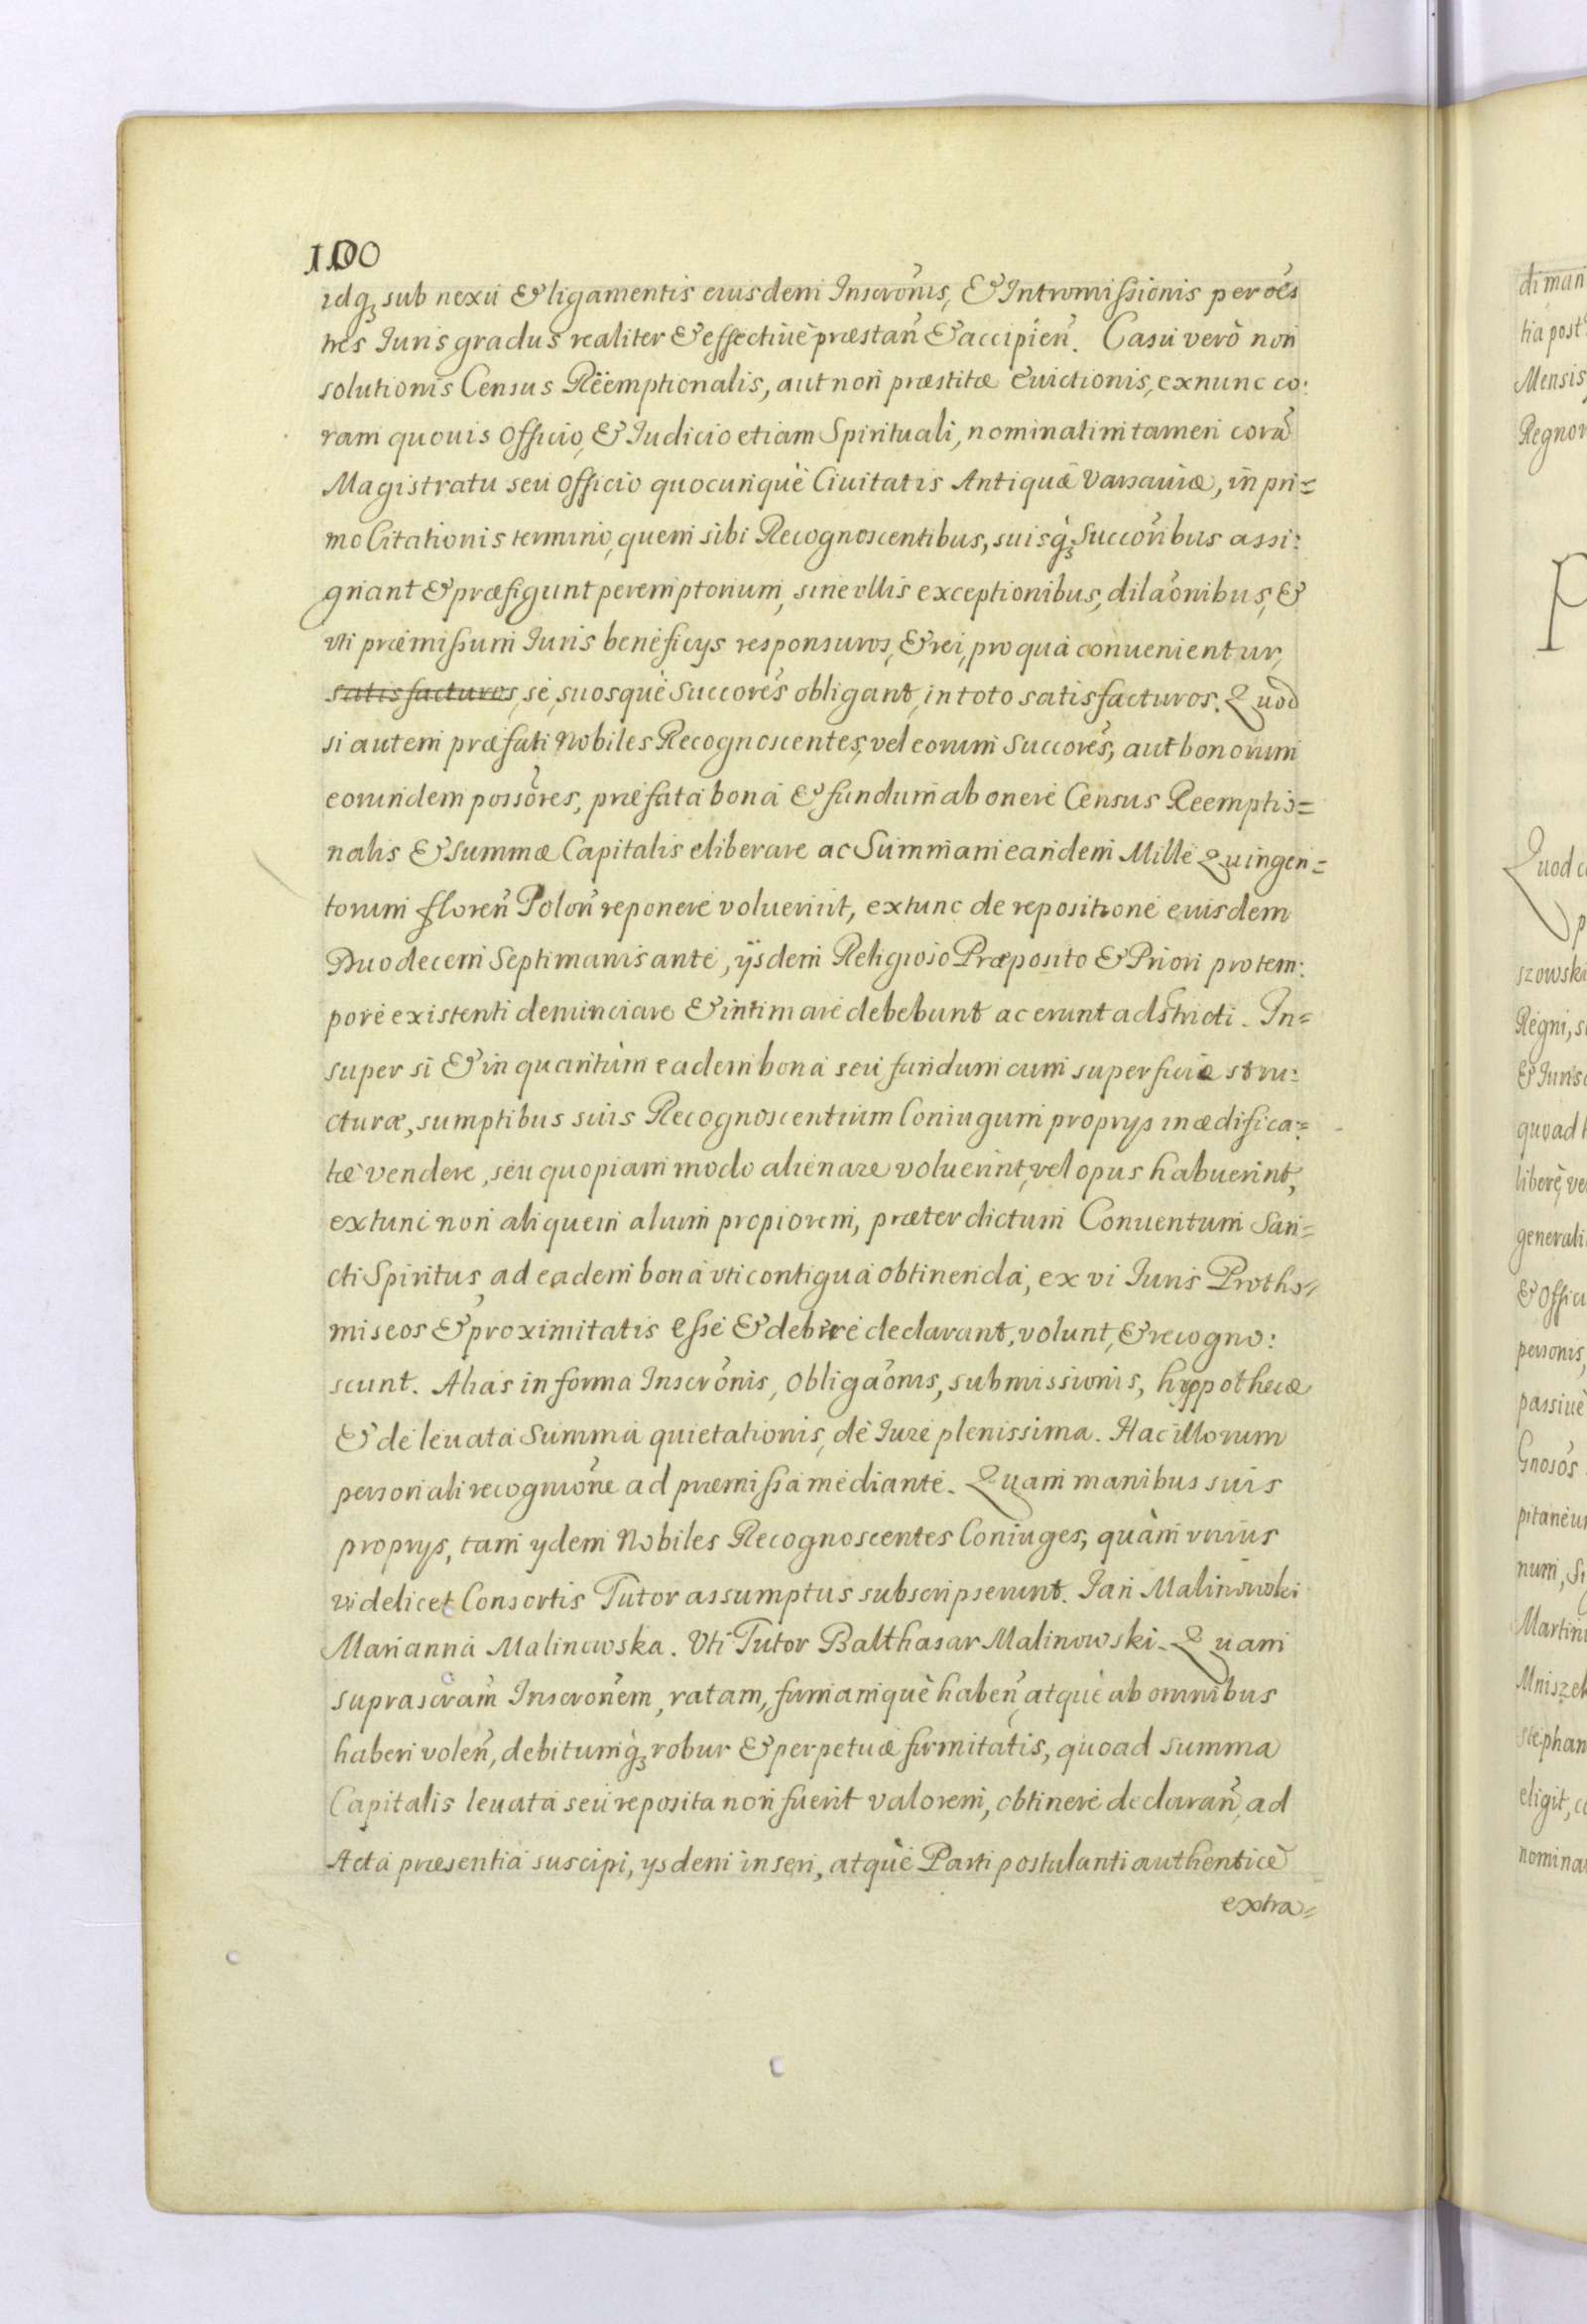 100
idq₃ sub nexu & ligamentis eiusdem Inscrōnis, & Intromissionis per oēs
tres Iuris gradus realiter & effectiuè præstan̄ & accipien̄. Casu verò non
solutionis Census Reëmptionalis, aut non præstitæ Euictionis, ex nunc co:
ram quouis officio, & Iudicio etiam Spirituali, nominatim tamen corā
Magistratu seu officio quocunquè Ciuitatis Antiquæ Varsauiæ, in pri=
mo Citationis termino, quem sibi Recognoscentibus, suisq₃ Succoribus assi:
gnant & præfigunt peremptorium, sine vllis exceptionibus, dilaōnibus, &
vti præmissum Iuris beneficijs responsuros, & rei, pro qua conuenientur,
satisfacturos, se, suosquè Succorēs obligant, in toto satisfacturos. Quod
si autem præfati Nobiles Recognoscentes, vel eorum Succorēs, aut bonorum
eorundem possōres, præfata bona & fundum ab onere Census Reemptio=
nalis & Summæ Capitalis eliberare ac Summam eandem Mille Quingen=
torum floren̄ Polon̄ reponere voluerint, extunc de repositione eiusdem
Duodecem Septimanis ante, ijsdem Religioso Præposito & Priori pro tem:
pore existenti denunciare & intimare debebunt ac erunt adstricti. In=
super si & in quantùm eadem bona seu fundum cum superficie stru:
cturæ, sumptibus suis Recognoscentium Coniugum proprijs inædifica:
tæ vendere, seu quopiam modo alienare voluerint, vel opus habuerint,
extunc non aliquem alium propiorem, præter dictum Conuentum San=
cti Spiritus, ad eadem bona vti contigua obtinenda, ex vi Iuris Protho=
miseos & proximitatis esse & debere declarant, volunt, & recogno:
scunt. Alias in forma Inscrōnis, Obligaōnis, submissionis, hyppothecæ
& de leuata Summa quietationis, de Iure plenissima. Hac illorum
personali recogniōne ad præmissa mediante. Quam manibus suis
proprijs, tam ijdem Nobiles Recognoscentes Coniuges, quàm vnius
videlicet Consortis Tutor assumptus subscripserunt. Jan Malinowski
Marianna Malinowska. Vti Tutor Balthasar Malinowski. Quam
suprascram̄ Inscronēm, ratam, firmamquè haben̄, atquè ab omnibus
haberi volen̄, debitumq₃ robur & perpetuæ firmitatis, quoad summa
Capitalis leuata seu reposita non fuerit valorem, obtinere declaran̄, ad
Acta præsentia suscipi, ijsdem inseri, atquè Parti postulanti authenticè
extra=
di man
tia post
Mensis
Regnor
P
Quod c
p
szowski
Regni, s
& Iuris
quoad
liberè, ve
generali
& Offici
personis,
passiuè
Gnosōs
pitaneu
num, S
Martin
Mniszek
Stephan
eligit, c
nomina